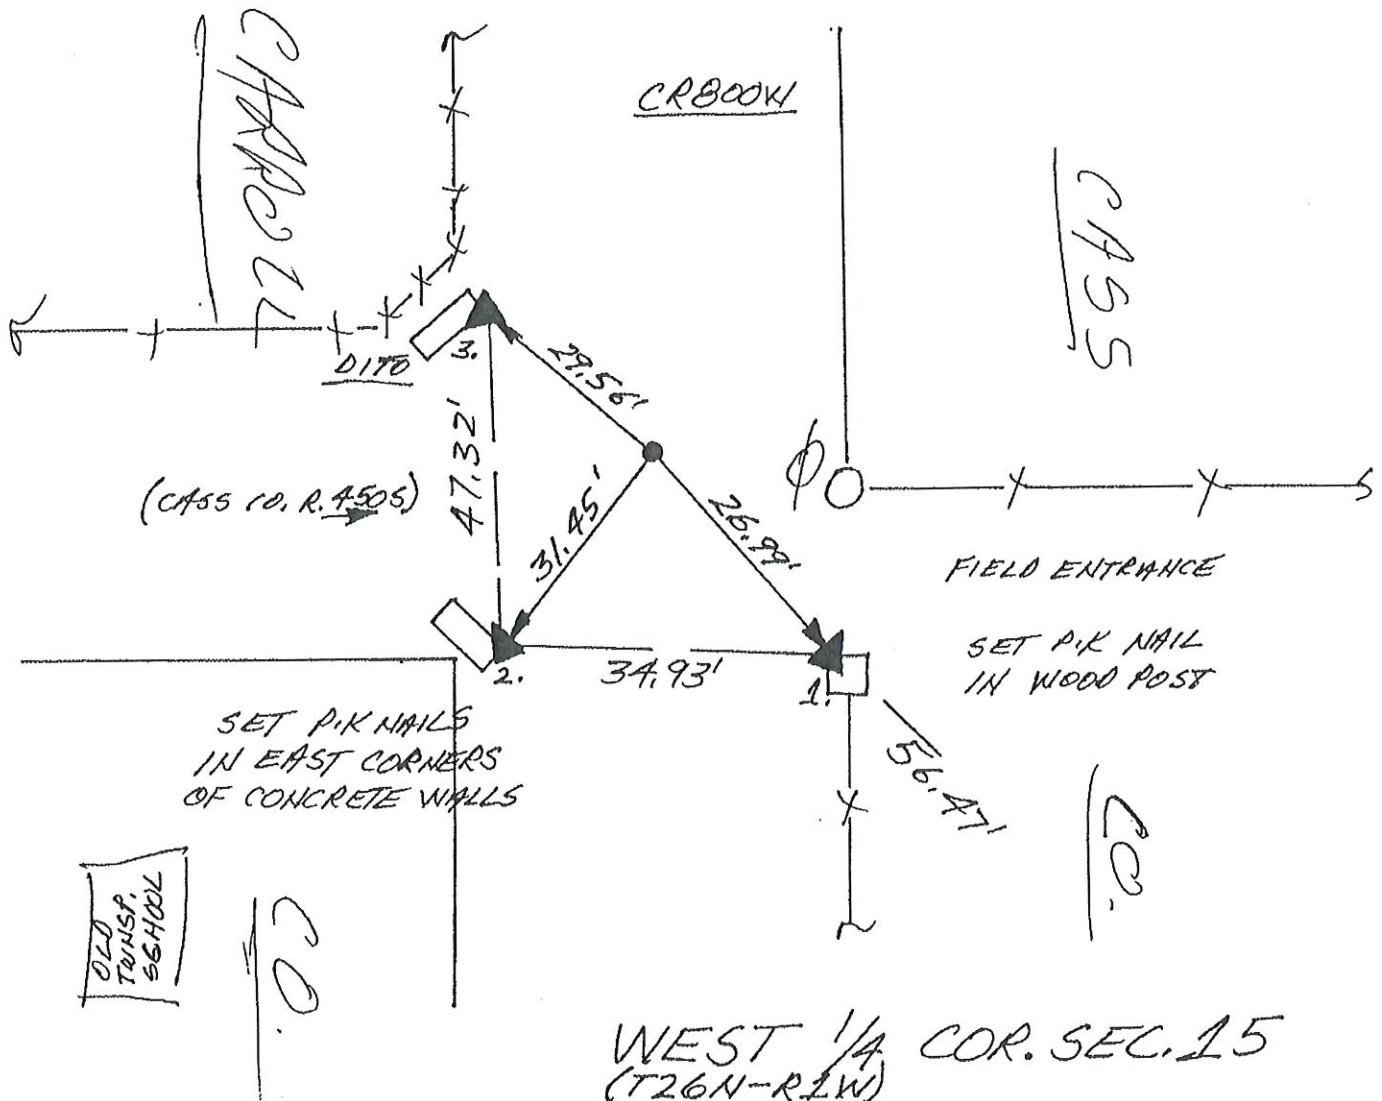 CARROLL
CR800W
CASS
3.
DITO
29.56'
47.32'
(CASS CO. R. 450S)
31.45'
26.99'
FIELD ENTRANCE
SET P.K NAIL
IN WOOD POST
2.
34.93'
1.
56.47'
SET P.K NAILS
IN EAST CORNERS
OF CONCRETE WALLS
CO.
OLD
TWNSP.
SCHOOL
CO.
WEST 1/4 COR. SEC. 15
(T26N-R1W)